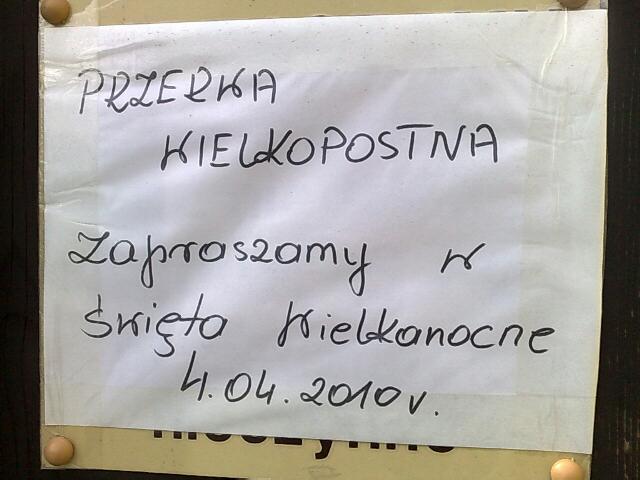 PRZERWA
WIELKOPOSTNA
Zapraszamy w
Święta Wielkanocne
4.04.2010 r.